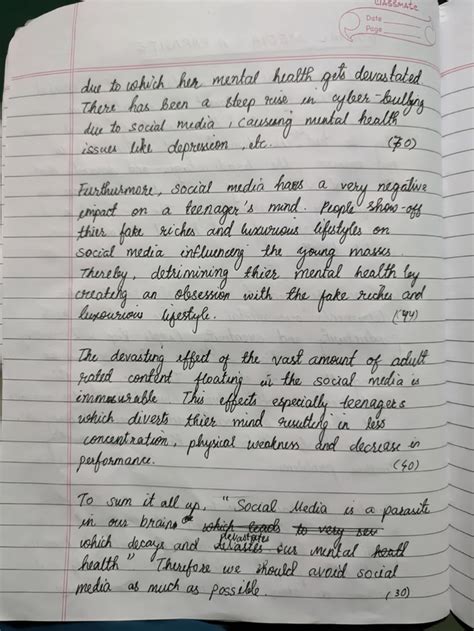 CLASSMATE
Date
Page
due to which her mental health gets devastated.
There has been a steep rise in cyber-bullying
due to social media, causing mental health
issues like depression, etc. (70)
Furthurmore, social media has a very negative
impact on a teenager's mind. People show-off
thier fake riches and luxurious lifestyles on
social media influencing the young masses
Thereby, detrimining thier mental health by
creating an obsession with the fake riches and
luxourious lifestyle. (44)
The devasting effect of the vast amount of adult
rated content floating in the social media is
immeasurable This effects especially teenagers
which diverts thier mind resulting in less
concentration, physical weakness and decrease in
performance. (40)
To sum it all up, "Social Media is a parasite
in our brains which leads to very sev
which decays and devastates our mental healt
health" Therefore we should avoid social
media as much as possible. (30)